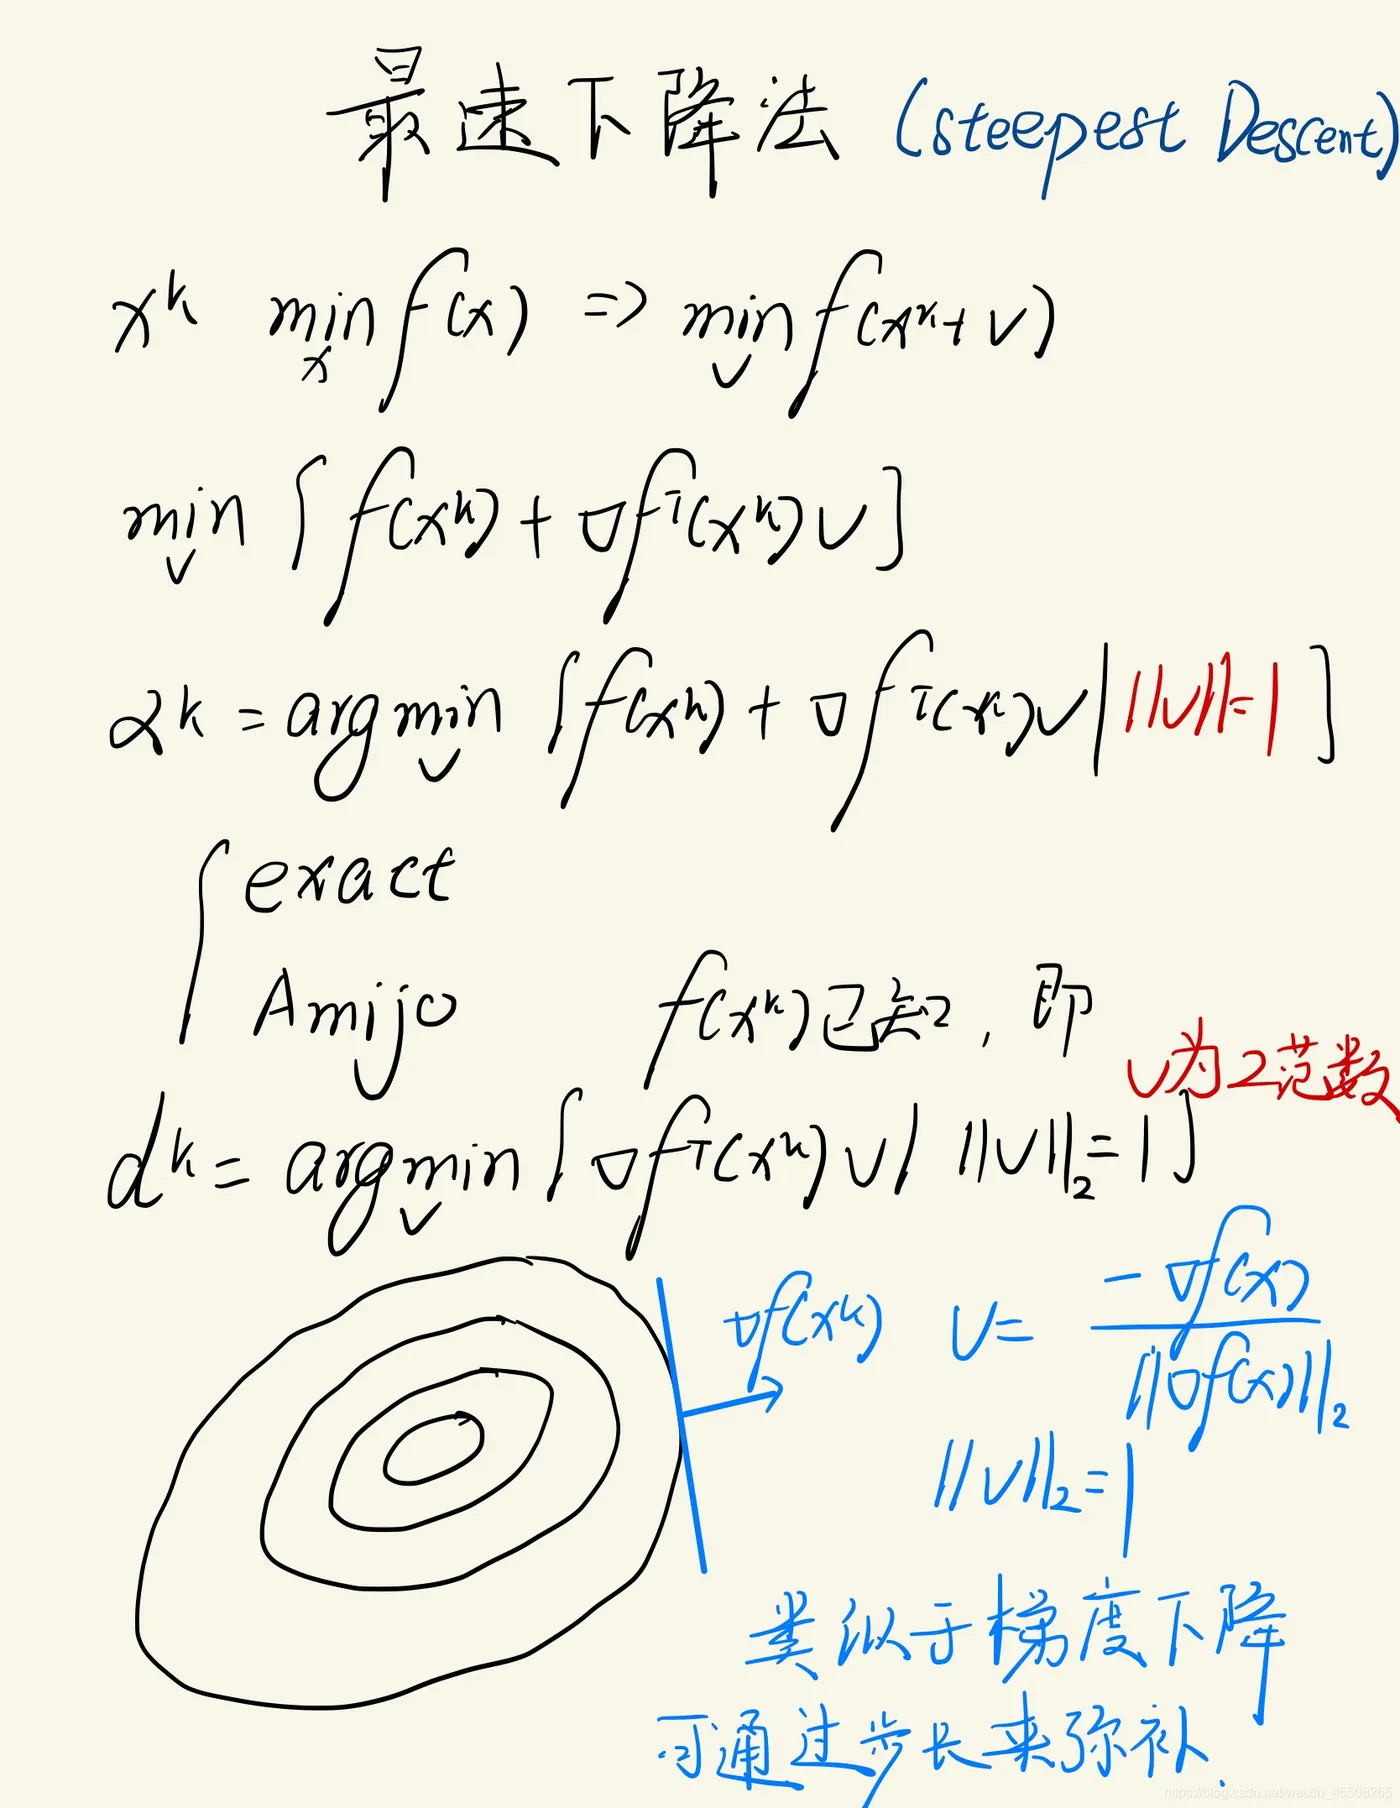 最速下降法 (steepest Descent)
x^k min_x f(x) => min_v f(x^k + v)
min_v [f(x^k) + ∇f^T(x^k) v]
α^k = arg min_v [f(x^k) + ∇f^T(x^k) v | ||v|| = 1]
exact
Amijo
f(x^k) 已知, 即
v为2范数
d^k = arg min_v [∇f^T(x^k) v | ||v||_2 = 1]
∇f(x^k) v = -∇f(x) / ||∇f(x)||_2
||v||_2 = 1
类似于梯度下降
可通过步长来弥补.
https://blog.csdn.net/weixin_45508265